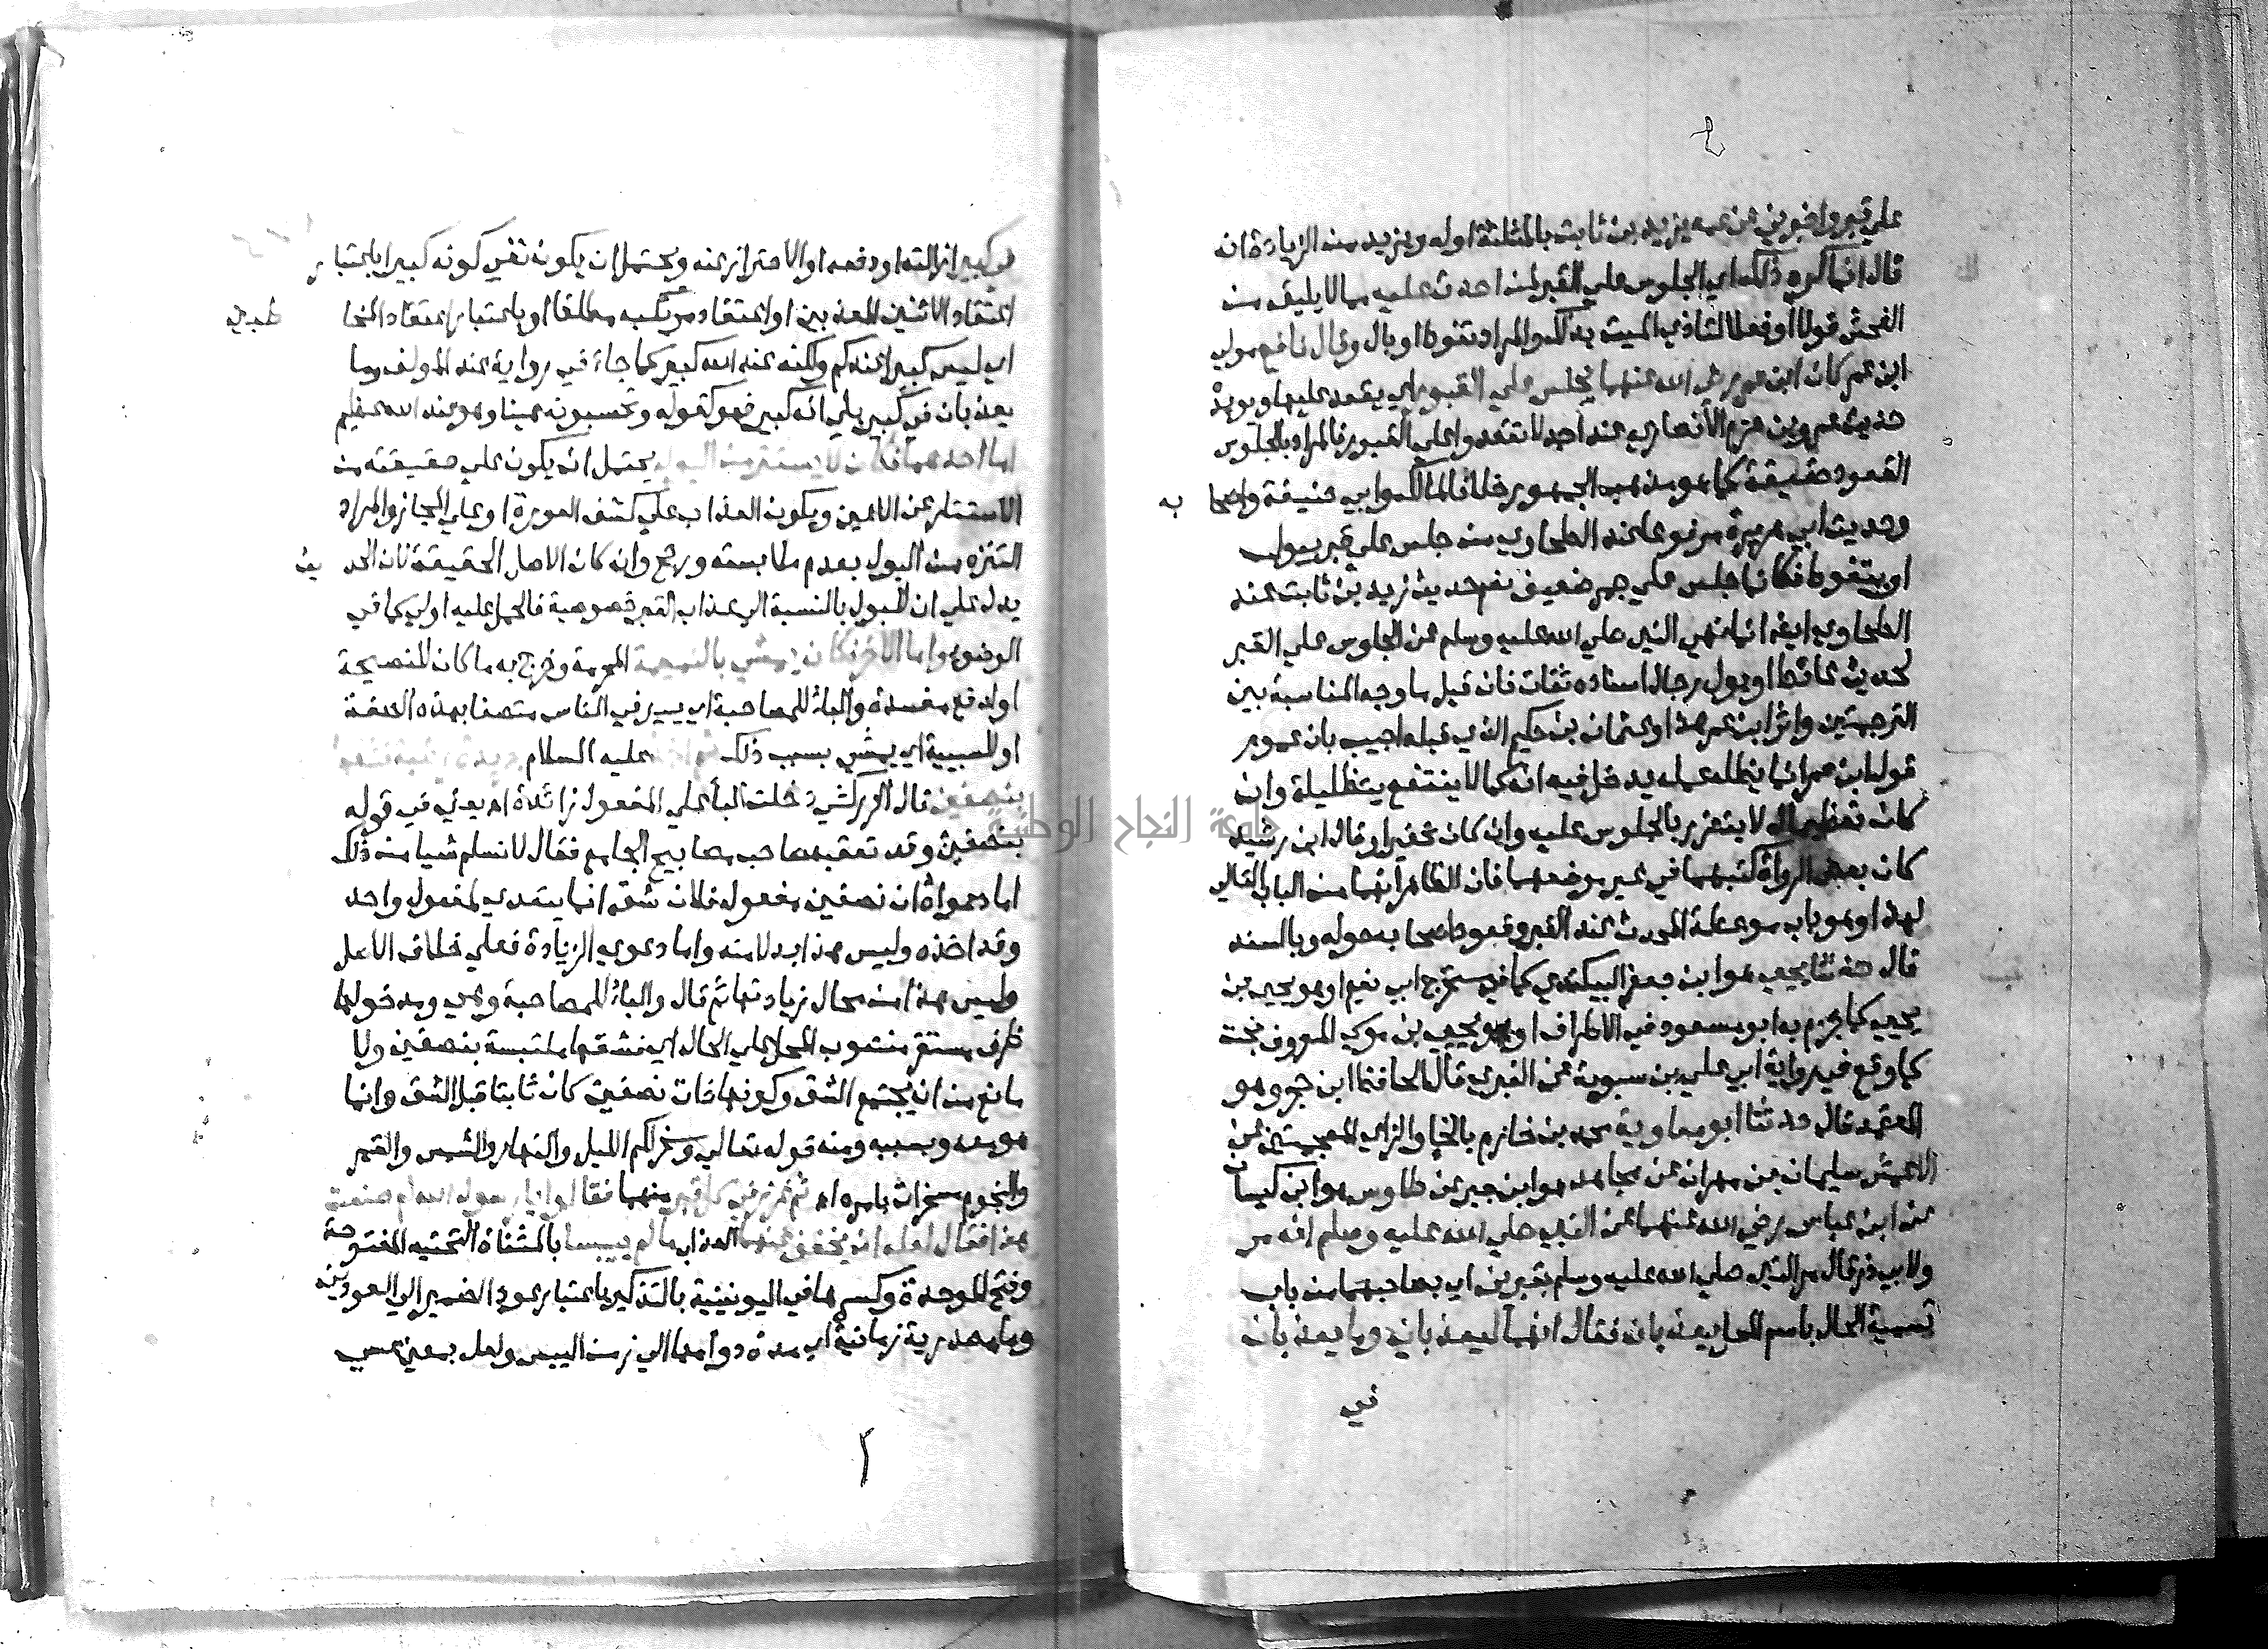 علي قبر واخبرني عن عمه يزيد بن ثابت بالمثلثة اوله ويزيد من الزيادة انه
قال انما كره ذلك اي الجلوس علي القبر لمن احدث عليه مما لا يليق من
الفحش قولا او فعلا لتاذي الميت بذلك والمراد تغوط او بال وقال نافع مولي
ابن عمر كان ابن عمر رضي الله عنهما يجلس علي القبور اي يقعد عليها ويويد
حديث عمرو بن حزم الأنصاري عند احمد لا تقعدوا علي القبور فالمراد بالجلوس
القعود حقيقة كما هو مذهب الجمهور خلافا لمالك وابي حنيفة واصحابه
وحديث ابي هريرة مرفوعا عند الطحاوي من جلس علي قبر يبول
او يتغوط فكانما جلس علي جمر ضعيف نعم حديث زيد بن ثابت عند
الطحاوي ايضا انما نهي النبي صلي الله عليه وسلم عن الجلوس علي القبر
لحديث غائط او بول رجال اسناده ثقات فان قيل ما وجه المناسبة بين
الترجمتين واثر ابن عمر هذا وعثمان بن حكيم الذي قبله اجيب بان عموم
قول ابن عمر انما يظله عمله يدخل فيه انه كما لا ينتفع بتظليله وان
كان تعظيما له لا يتضرر بالجلوس عليه وان كان تحقيرا وقال ابن رشيد
كان بعض الرواة كتبهما في غير موضعهما فان الظاهر انهما من الباب التالي
لهذا وهو باب موعظة المحدث عند القبر وقعود اصحابه حوله وبالسند
قال حدثنا يحيي هوا ابن جعفر البيكندي كما في مستخرج ابي نعيم او هو يحيي بن
يحيي كما جزم به ابو مسعود في الاطراف او هو يحيي بن موسي المعروف بخت
كما وقع في رواية ابي علي بن سبوية عن الفبري قال الحافظ ابن حجر وهو
المعتمد قال حدثنا ابو معاوية محمد بن خازم بالخا والزاي المعجمتين عن
الاعمش سليمان بن مهران عن مجاهد هو ابن جبر عن طاوس هو ابن كيسان
عن ابن عباس رضي الله عنهما عن النبي صلي الله عليه وسلم انه مر
ولابي ذر قال مر النبي صلي الله عليه وسلم بقبرين اي بصاحبهما من باب
تسمية الحال باسم المحل يعذبان فقال انهما ليعذبان وما يعذبان
في
في كبير ازالته او دفعه او الاحتراز عنه ويحتمل ان يكون نفي كونه كبيرا باعتبار
اعتقاد الاثنين المعذبين او اعتقاد مرتكبه مطلقا او باعتبار اعتقاد المخاطبين
اي ليس كبيرا عندكم ولكنه عند الله كبير كما جاء في رواية عند المولف وما
يعذبان في كبير بلي انه كبير فهو كقوله وتحسبونه هينا وهو عند الله عظيم
اما احدهما فكان لا يستتر من البول يحتمل ان يكون علي حقيقته من
الاستتار عن الاعين ويكون العذاب علي كشف العورة او علي المجاز والمراد
التنزه من البول بعدم ملابسته ورجح وان كان الاصل الحقيقة فان الحديث
يدل علي ان للبول بالنسبة الي عذاب القبر خصوصية فالحمل عليه اولي كما في
الوضوء واما الآخر فكان يمشي بالنميمة المحرمة وخرج به ما كان للنصيحة
او لدفع مفسدة والباء للمصاحبة اي يسير في الناس متصفا بهذه الصفة
او للسببية اي يمشي بسبب ذلك ثم اخذ عليه السلام جريدة رطبة فشقها
بنصفين قال الزركشي دخلت الباء علي المفعول زائدة اه يعني في قوله
بنصفين وقد تعقبه صاحب مصابيح الجامع فقال لا نسلم شيا من ذلك
اما دعواه ان نصفين مفعول فلان شق انما يتعدي لمفعول واحد
وقد اخذه وليس هذا بدلا منه واما دعوي الزيادة فعلي خلاف الاصل
وليس هذا من محال زيادتها ثم قال والباء للمصاحبة وهي ومدخولها
ظرف مستقر منصوب المحل علي الحال اي فشقها ملتبسة بنصفين ولا
مانع من ان يجتمع الشق وكونها ذات نصفين كان ثابتا قبل الشق وانما
هو معه وبسببه ومنه قوله تعالي وسخر لكم الليل والنهار والشمس والقمر
والنجوم مسخرات بامره اه ثم غرز في كل قبر منهما فقالوا يا رسول الله لم صنعت
هذا فقال لعله ان يخفف عنهما العذاب ما لم ييبسا بالمثناة التحتيه المفتوحة
وفتح الموحدة وكسرها في اليونينية بالتذكير باعتبار عود الضمير الي العودين
وما مصدرية زمانية اي مدة دوامهما الي زمن اليبس ولعل بمعني عسي
جامعة النجاح الوطنية